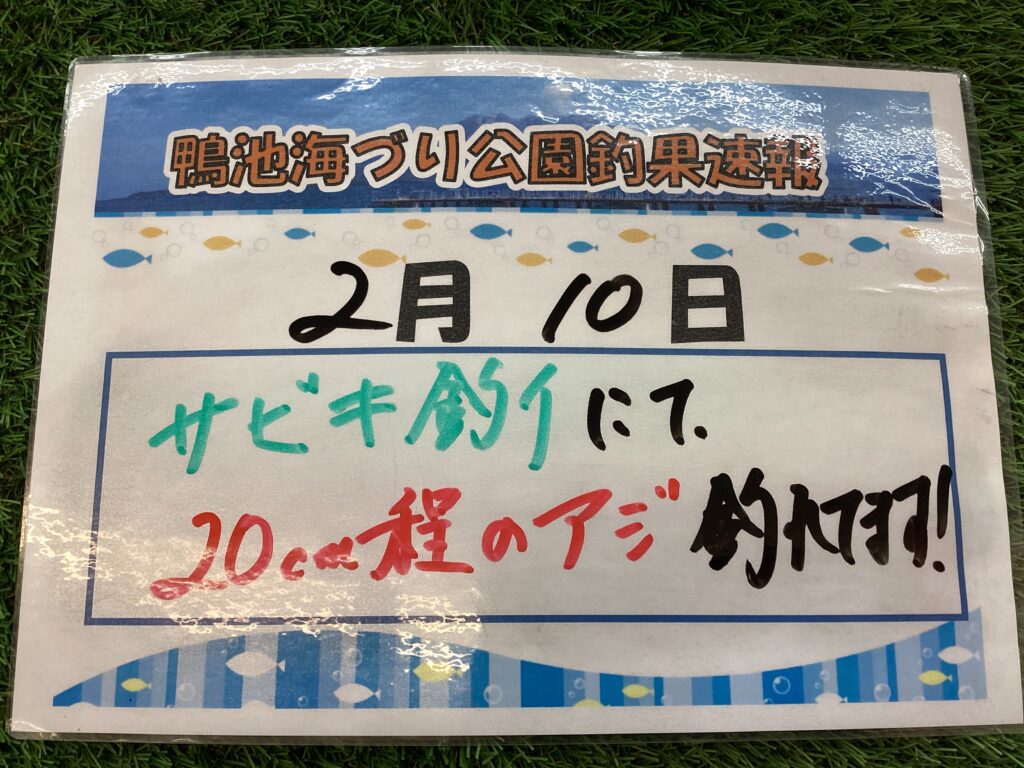 鴨池海づり公園釣果速報
2月 10日
サビキ釣りにて、
20cm程のアジ釣れてます!